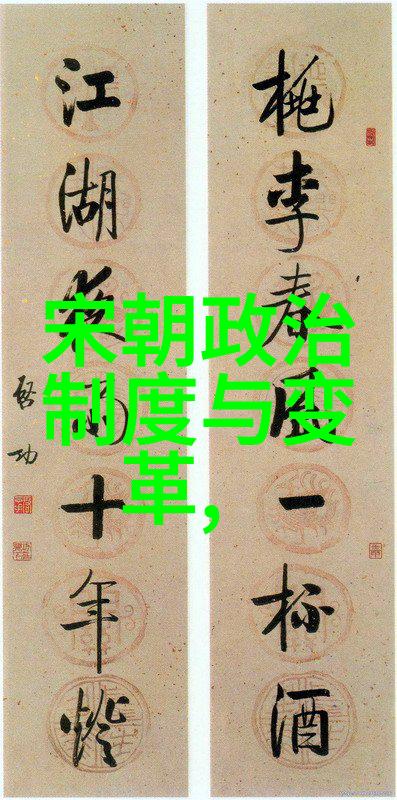 桃李春风一杯酒
江湖夜雨十年灯
启功
宋朝政治
制度与变
革,